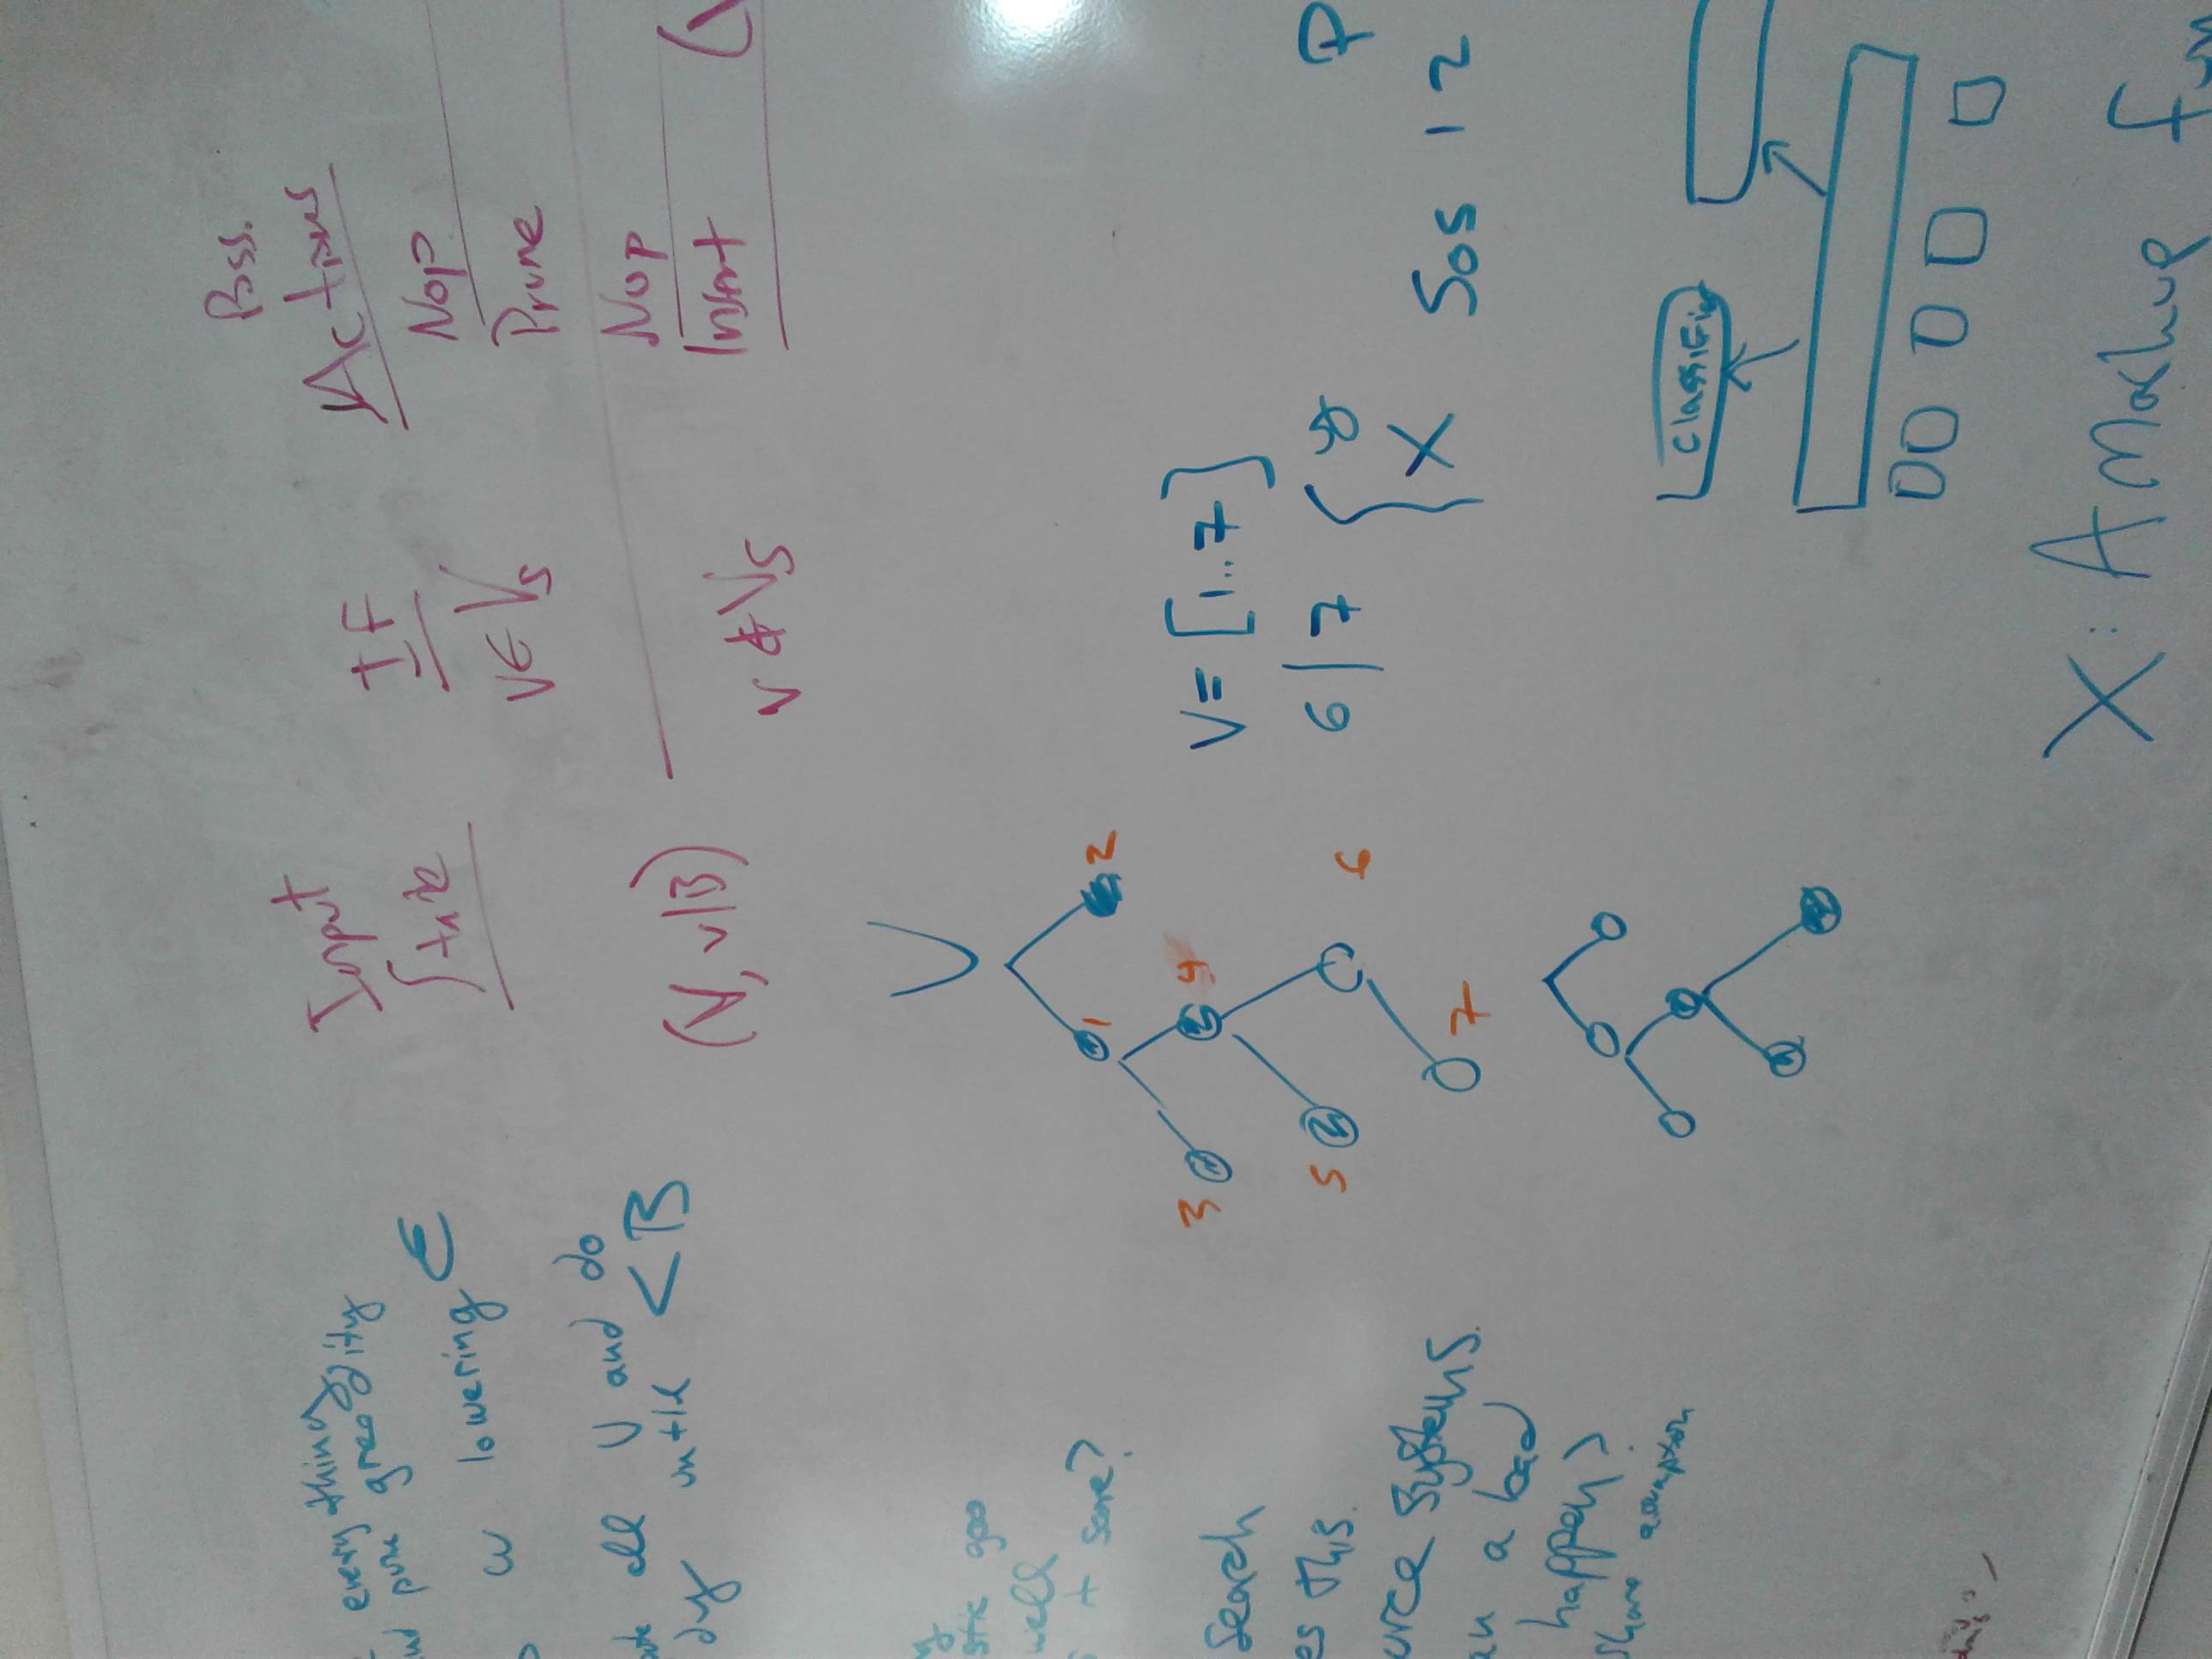 everything
and pure greedity
w lowering ϵ
all V and do
until < B
goo
well
+ score?
Search
es this.
urce systems.
an a bad
happen?
Share assumption
Input
State
(V, v|B)
IF
v ∈ Vs
v ∉ Vs
Poss.
Actions
Nop
Prune
Nop
Insert (
V
1 2
3 4
5 6
7
V = [1..7]
6 | 7 { y
X Sos 1 2
P
Classifier
X: A Markup